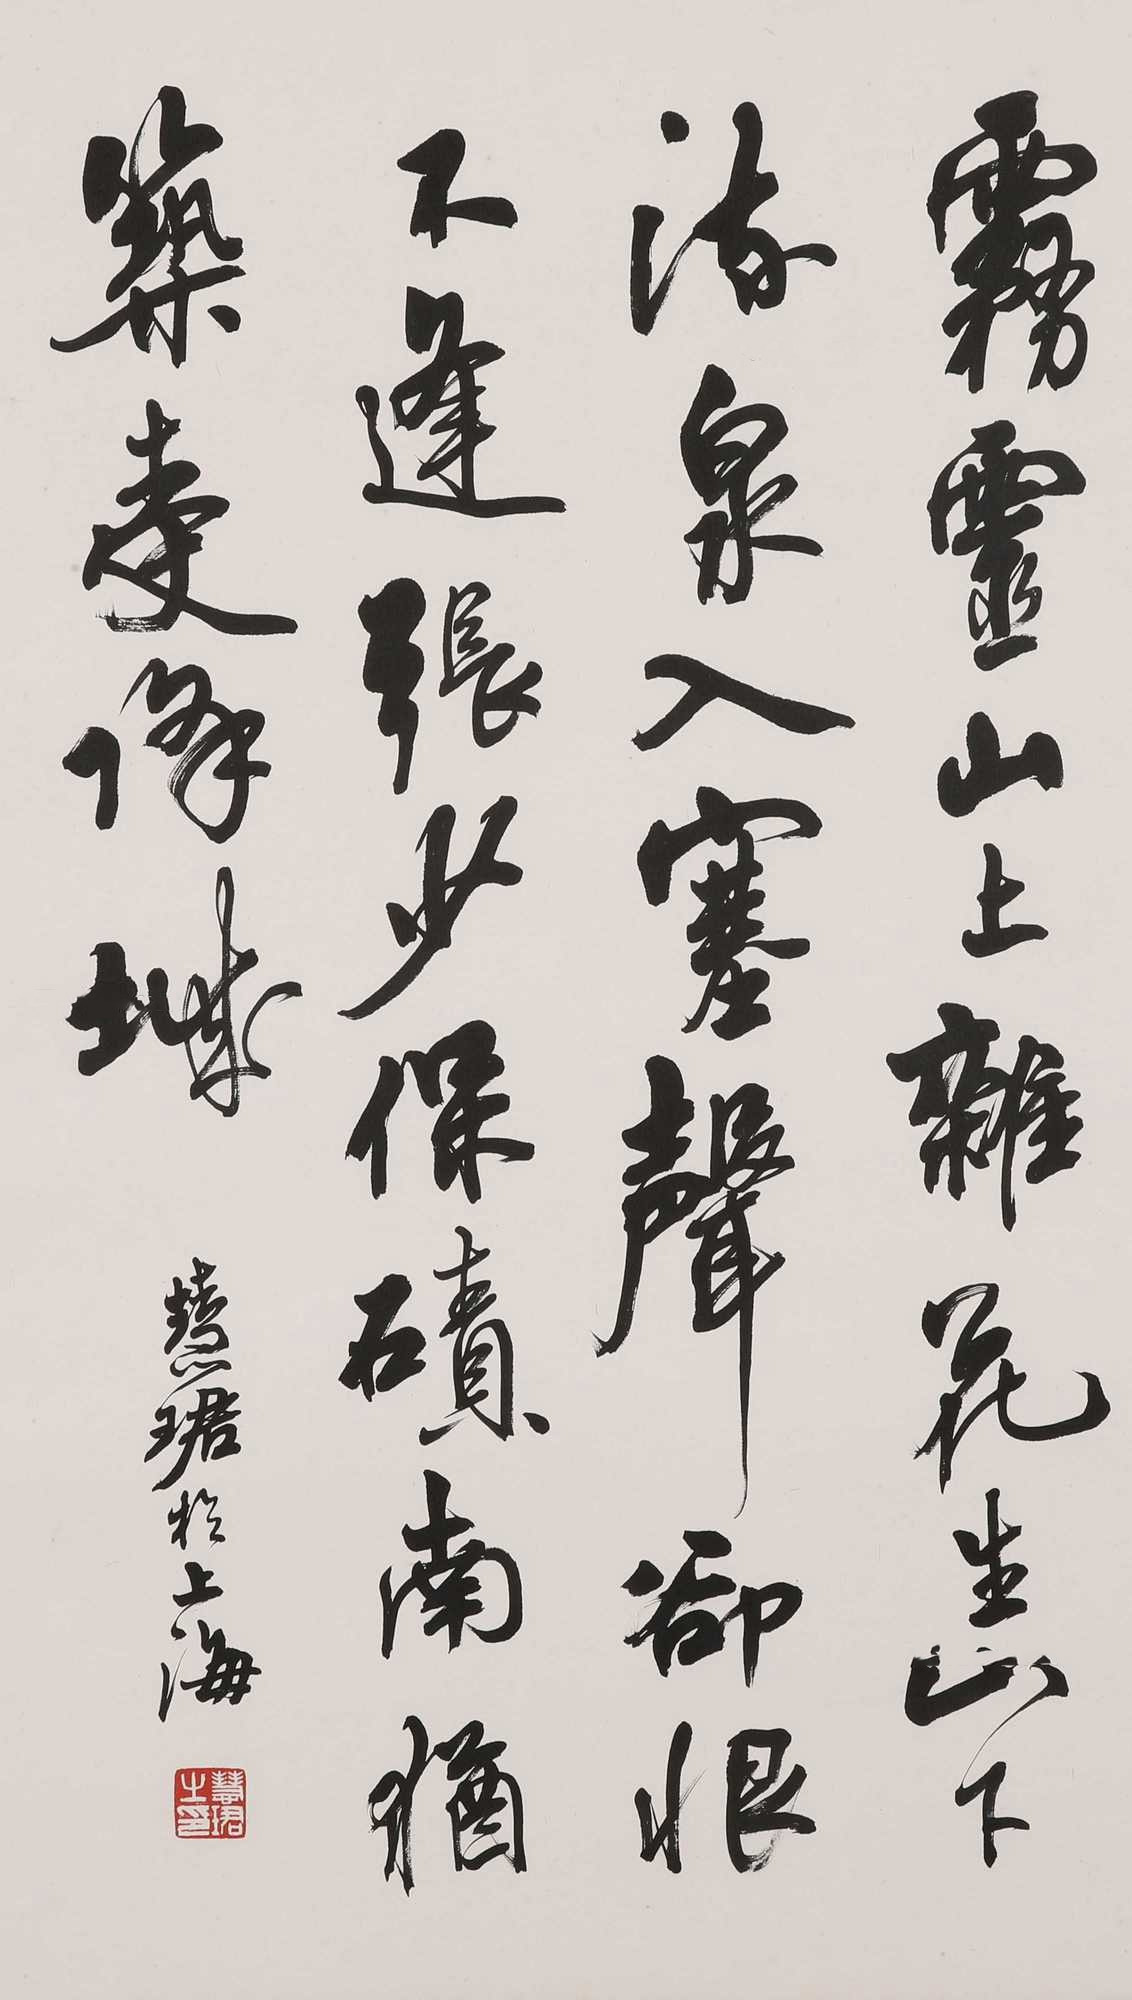 霧靈山上雜花生山下
流泉入塞聲卻恨
不逢張少保磧南猶
築受降城
慧珺於上海
慧珺之印